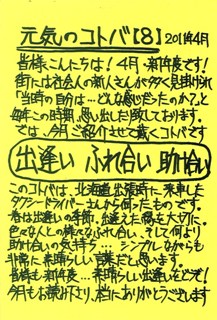 元気のコトバ【8】 2011年4月
皆様こんにちは！4月、新年度です！
街には社会人の新人さんが多く見掛けられ
「当時の自分は…どんな感じだったのか？」と
毎年この時期、思い出した際しております。
では、今月ご紹介させて戴くコトバです
出逢い ふれ合い 助け合い
このコトバは、北海道出張時に、乗車した
タクシードライバーさんから伺ったものです。
春は出逢いの季節、出逢えた縁を大切に。
色々な人との様々なふれ合い、そして何より
助け合いの気持ち…シンプルながらも
非常に素晴らしい言葉だと思います。
皆様も新年度…素晴らしい出逢いをどうぞ！
今月もお読み下さり、誠にありがとうございます